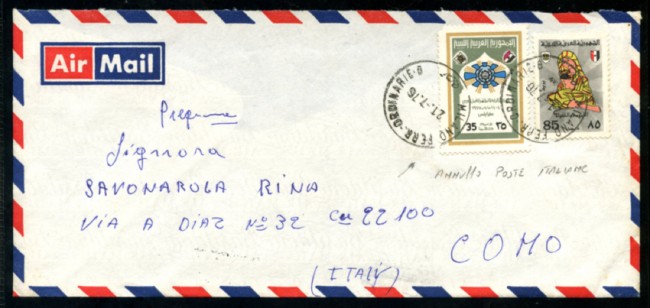 Air Mail
35 ٣٥
85 ٨٥
MILANO FERR-ORDINARIE-B
21.7.76
ANNULLO POSTE ITALIANE
Signora
SAVONAROLA RINA
VIA A DIAZ Nº 32 22100
COMO
(ITALY)